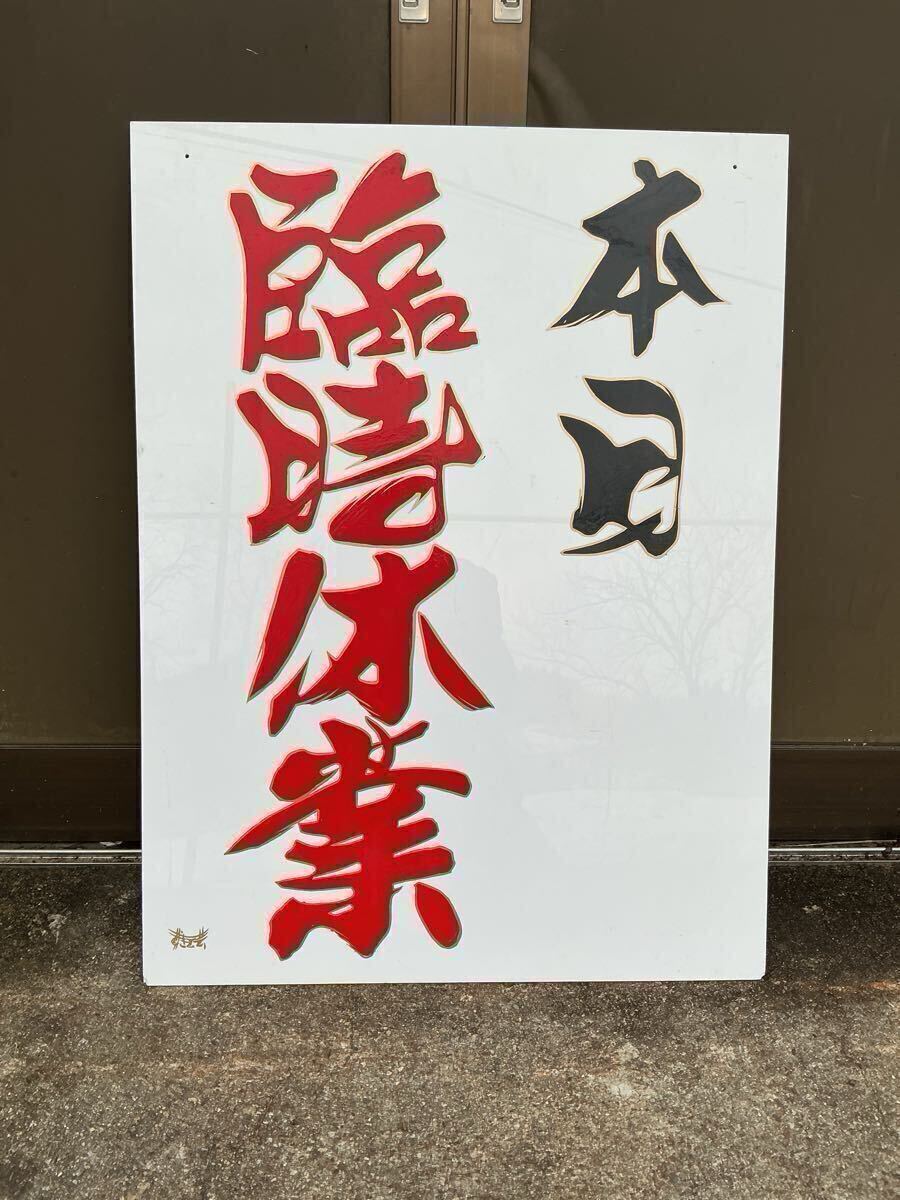 本日
臨時休業